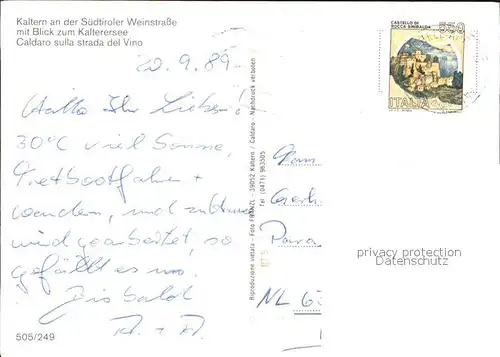 Kaltern an der Südtiroler Weinstraße
mit Blick zum Kalterersee
Caldaro sulla strada del Vino
20.9.89
CASTELLO DI
ROCCA SINIBALDA
550
ITALIA
Hallo Ihr Lieben!
30°C viel Sonne,
Tretbootfahren +
wandern, und zuhause
wird gearbeitet, so
gefällt es uns.
Bis bald
Riproduzione vietata - Foto FRÄNZL - 39052 Kaltern / Caldaro - Nachdruck verboten
Tel (0471) 963305
Fam
NL
privacy protection
Datenschutz
505/249